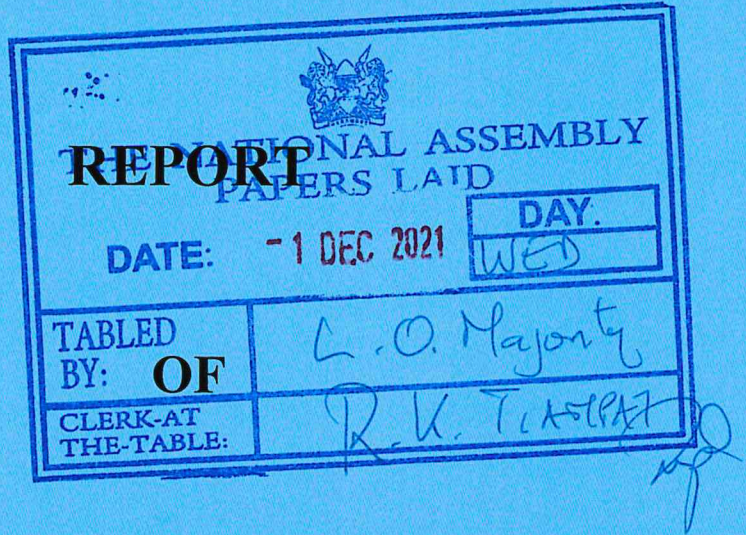 THE NATIONAL ASSEMBLY
REPORT
PAPERS LAID
DATE: -1 DEC 2021
DAY.
WED
TABLED BY: L.O. Majority
OF
CLERK-AT THE-TABLE: R.K.